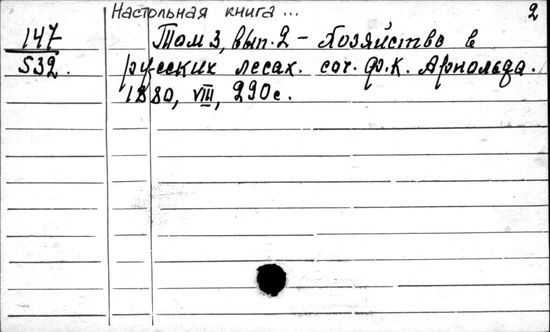 Настольная книга ...
2
147
532.
Том 3, вып. 2 - Хозяйство в
русских лесах. соч. Ф.К. Арнольда.
1880, VIII, 290 с.